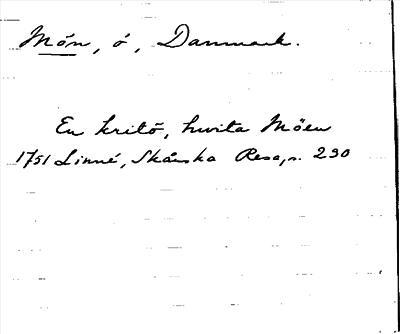 Mön, ö, Danmark.
En kritö, hvita Möen
1751 Linné, Skånska Resa, s. 290